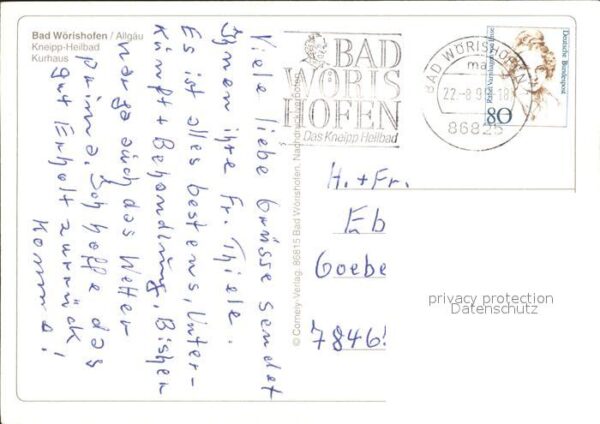 Bad Wörishofen / Allgäu
Kneipp-Heilbad
Kurhaus
Viele liebe Grüsse sendet
Ihnen ihre Fr. Thiele.
Es ist alles bestens, Unter-
künft + Behandlung, Bisher
war ja auch das Wetter
prima. Ich hoffe das
gut Erholt zurrück
komme!
© Comery-Verlag, 86815 Bad Wörishofen, Nachdruck verboten
BAD
WÖRIS
HOFEN
Das Kneipp Heilbad
BAD WÖRISHOFEN 1
ma
22.-8.9 -18
86825
Deutsche Bundespost
Rahel Varnhagen von Ense
80
H. + Fr.
Eb
Goebe
7846
privacy protection
Datenschutz